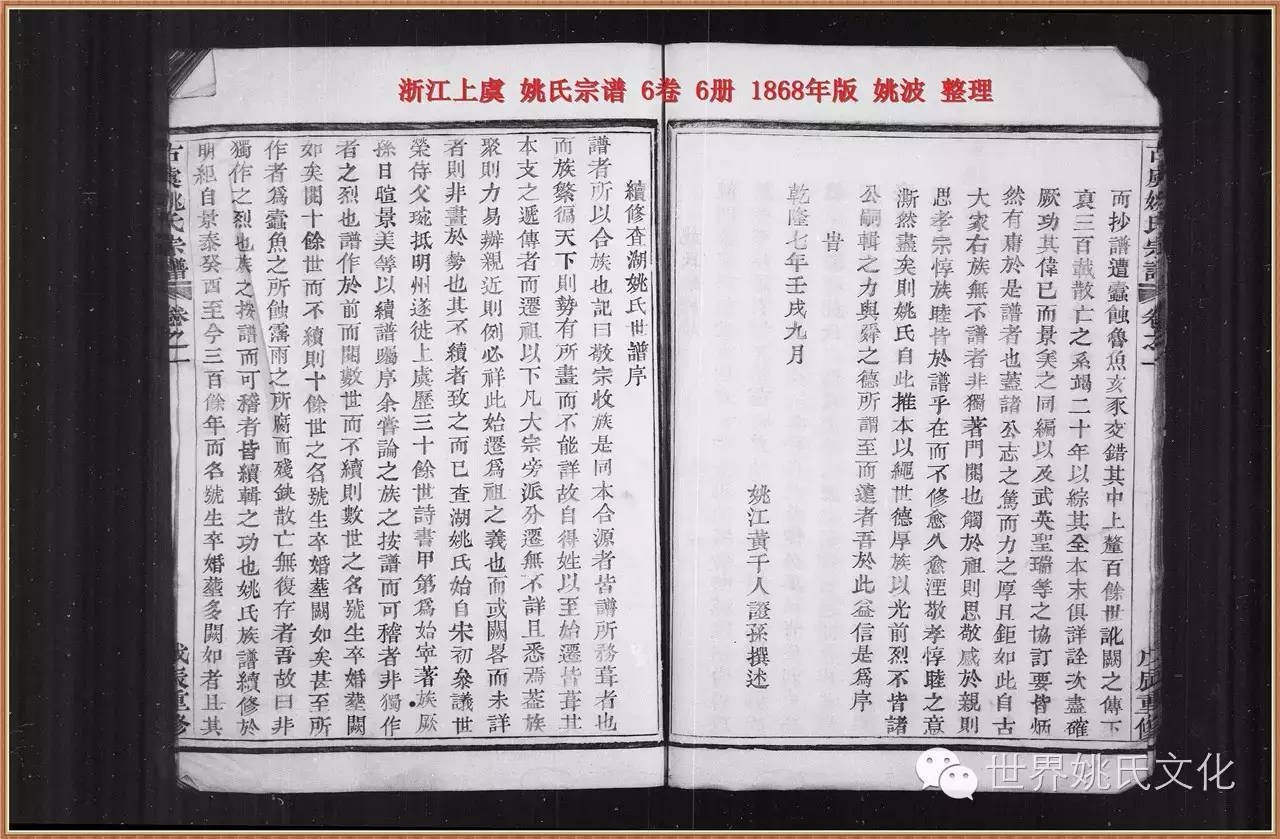 浙江上虞 姚氏宗谱 6卷 6册 1868年版 姚波 整理
而抄譜遭蠹蝕魯魚亥豕交錯其中上釐百餘世訛闕之傳下
裒三百載散亡之系竭二十年以綜其全本末俱詳詮次盡確
厥功其偉已而景美之同編以及武英聖瑞等之協訂要皆炳
然有庸於是譜者也蓋諸公志之篤而力之厚且鉅如此自古
大家右族無不譜者非獨著門閥也觸於祖則思敬感於親則
思孝宗惇族睦皆於譜乎在而不修愈久愈湮敬孝惇睦之意
漸然盡矣則姚氏自此推本以繩世德厚族以光前烈不皆諸
公嗣輯之力與舜之德所謂至而遠者吾於此益信是為序
旹
乾隆七年壬戌九月
姚江黃千人證孫撰述
續修查湖姚氏世譜序
譜者所以合族也記曰敬宗收族是同本合源者皆譜所務葺者也
而族繁徧天下則勢有所畫而不能詳故自得姓以至始遷皆葺其
本支之遞傳者而遷祖以下凡大宗旁派分遷無不詳且悉焉蓋族
聚則力易辦親近則例必祥此始遷爲祖之義也而或闕畧而未詳
者則非畫於勢也其不續者致之而已查湖姚氏始自宋初叅議世
榮侍父琬抵明州遂徙上虞歷三十餘世詩書甲第爲始寧著族厥
孫日暄景美等以續譜囑序余嘗論之族之按譜而可稽者非獨作
者之烈也譜作於前而閱數世而不續則數世之名號生卒婚塟闕
如矣閱十餘世而不續則十餘世之名號生卒婚塟闕如矣甚至所
作者爲蠹魚之所蝕霑雨之所腐而殘缺散亡無復存者吾故曰非
獨作之之烈也族之按譜而可稽者皆續輯之功也姚氏族譜續修於
明紀自景泰癸酉至今三百餘年而名號生卒婚塟多闕如者且其
古虞姚氏宗譜 卷之一
戊辰重修
世界姚氏文化